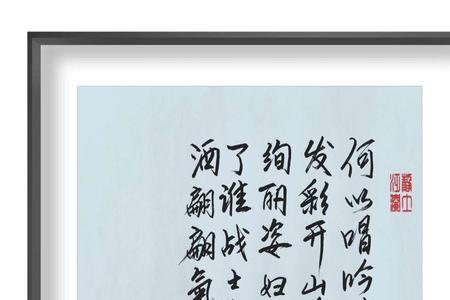 何以唱吟
发彩开山
绚丽姿妇
了谁战士
酒翩翩氣